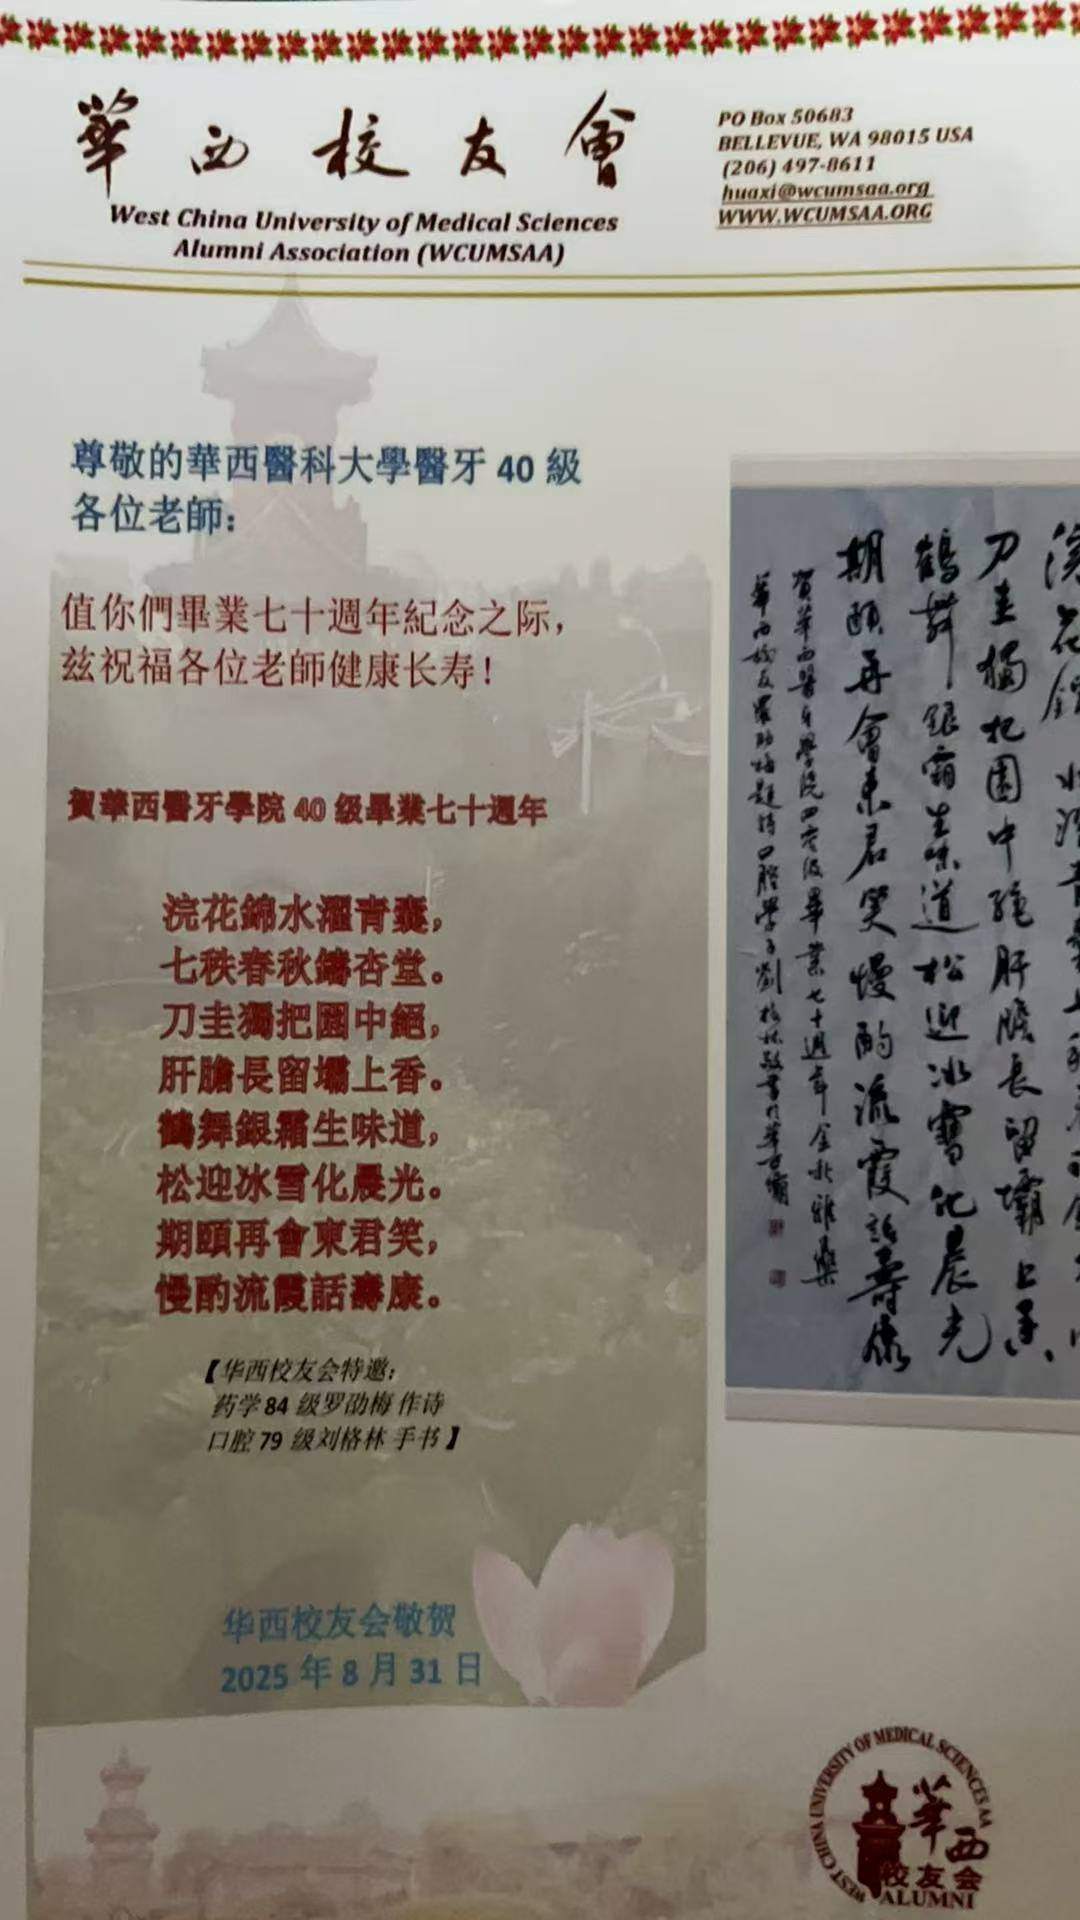 華西校友會
West China University of Medical Sciences
Alumni Association (WCUMSAA)
PO Box 50683
BELLEVUE, WA 98015 USA
(206) 497-8611
huaxi@wcumsaa.org
WWW.WCUMSAA.ORG
尊敬的華西醫科大學醫牙 40 級
各位老師:
值你們畢業七十週年紀念之际,
兹祝福各位老師健康长寿!
賀華西醫牙學院 40 级畢業七十週年
浣花錦水濯青囊,
七秩春秋鑄杏堂。
刀圭獨把園中絕,
肝膽長留壩上香。
鶴舞銀霜生味道,
松迎冰雪化晨光。
期頤再會東君笑,
慢酌流霞話壽康。
【华西校友会特邀:
药学 84 级罗劭梅 作诗
口腔 79 级刘格林 手书】
华西校友会敬贺
2025 年 8 月 31 日
浣花錦水濯青囊七
刀圭獨把園中絶肝膽長留壩上香
鶴舞銀霜生味道松迎冰雪化晨光
期頤再會東君笑慢酌流霞話壽康
賀華西醫牙學院四零级畢業七十週年
華西校友罗劭梅題詩口腔學子劉格林敬書於華西壩
WEST CHINA UNIVERSITY OF MEDICAL SCIENCES AA
華西
校友会
ALUMNI